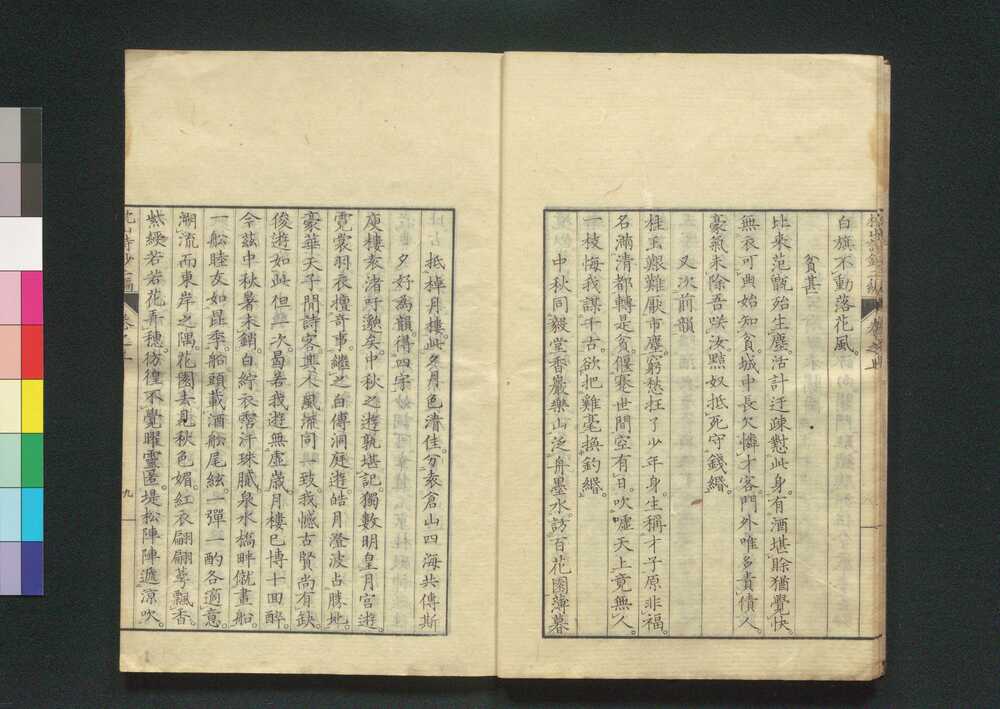 白旗不動落花風。
貧甚
比來范甑殆生塵。活計迂疎懟此身。有酒堪賒猶覺快
無衣可典始知貧。城中長欠憐才客。門外唯多責債人。
豪氣未除吾咲汝。點奴抵死守錢緡。
又次前韻
桂玉艱難厭市塵。窮愁枉了少年身。生稱才子原非福。
名滿清都轉是貧。偃蹇世間空有日。吹噓天上竟無人。
一枝悔我謀千古。欲把雞毫換釣緡。
中秋同毅堂香巖樂山泛舟墨水訪百花園薄暮
抵棹月樓。此夕月色清佳。分袁倉山四海共傳斯
夕好為韻得四字
庾樓袁渚紆邈矣。中秋之遊孰堪記。獨數明皇月宮遊。
霓裳羽衣擅奇事。繼之白傅洞庭遊。皓月澄波占勝地。
豪華天子閒詩客。輿木風流同興致。我憾古賢尚有缺
俊遊如此但一次。曷若我遊無虛歲。月樓已博十回醉。
今茲中秋暑未銷。白紵衣霑汗珠膩。泉水橋畔僦畫船。
一船睦友如昆季。船頭載酒船尾絃。一彈一酌各適意。
溯流而東岸之隅。花園去見秋色媚。紅衣翩翩萼飄香。
紫綬若若花弄穗。彷徨不覺曜靈匿。堤松陣陣遞涼吹。
卷之上
九